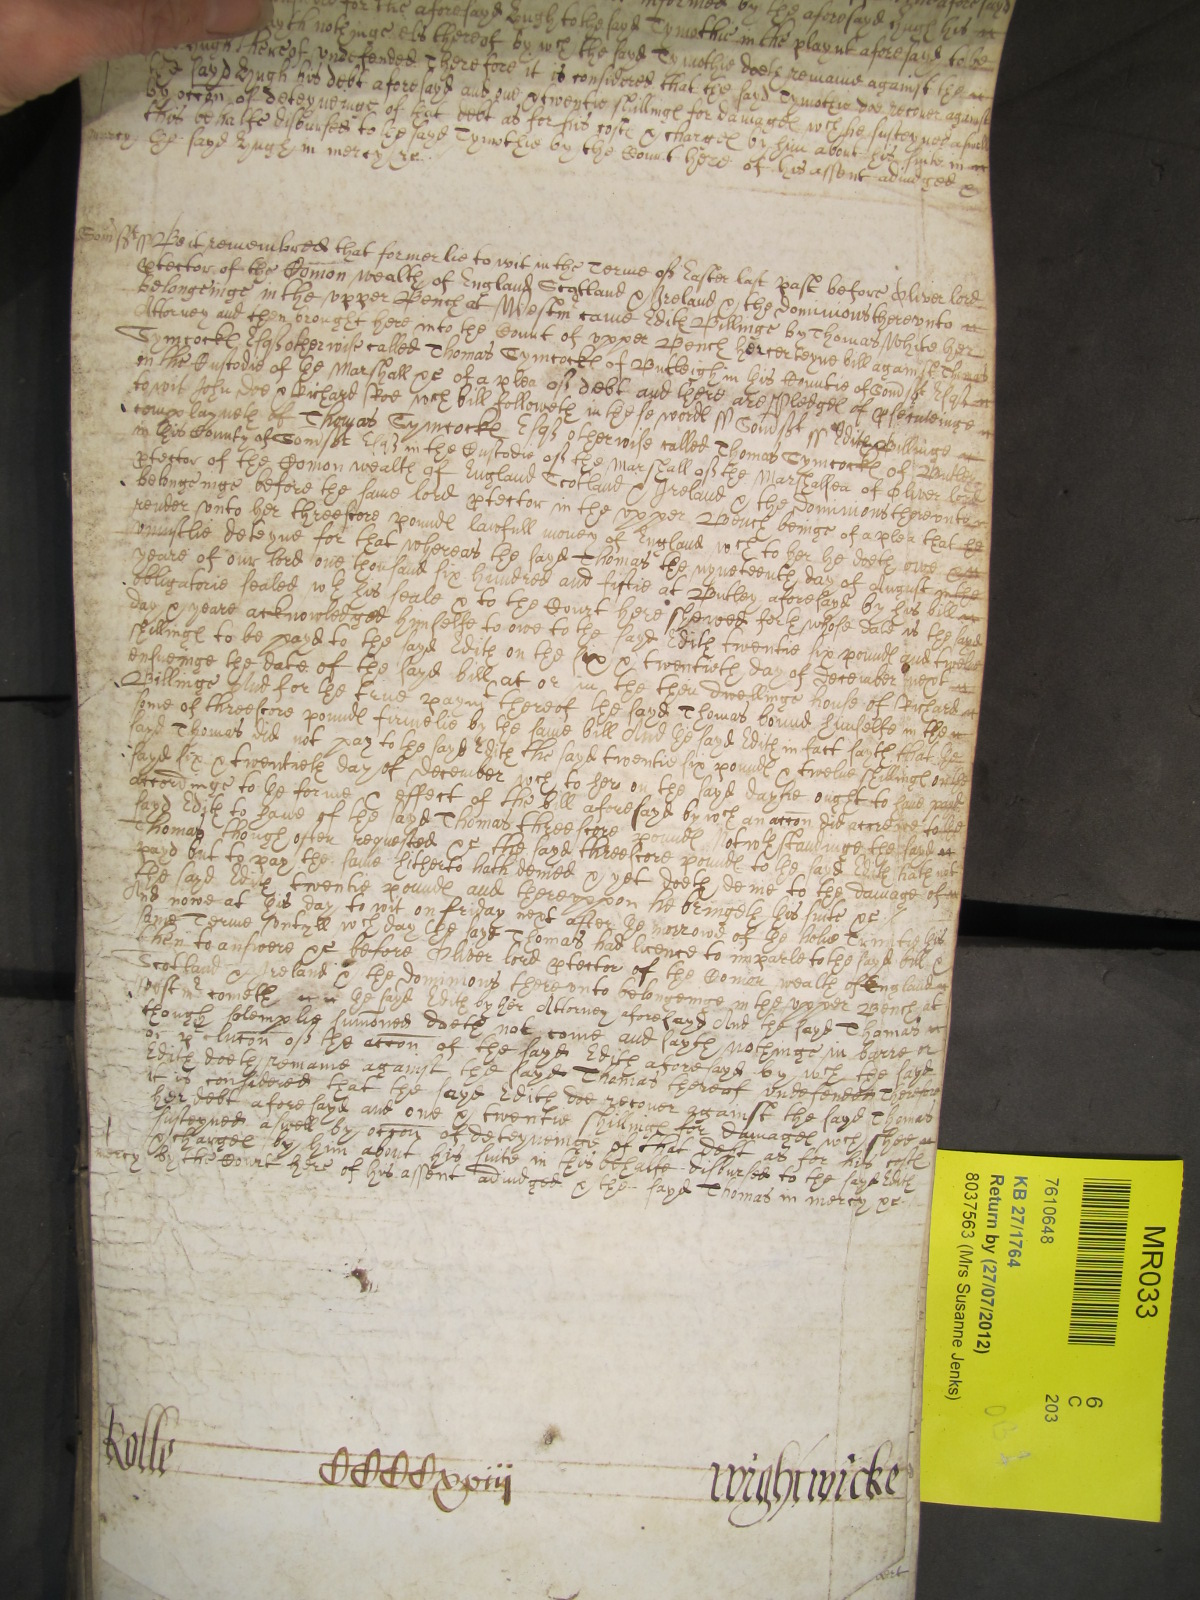 informed by the aforesayd Hugh his
for the aforesayd Hugh to the sayd Tymothie in the playnt aforesayd to be
sayth nothinge els thereof by wch the sayd Tymothie doeth remaine against the
Hugh thereof undefended Therefore it is considered that the sayd Tymothie doe recover against
the sayd Hugh his debt aforesayd and one & twentie shillinge for damages wch he susteyned aswell
by occon of deteyneinge of that debt as for his costs & charges by him about his suite in
this behalfe disbursed to the sayd Tymothie by the Court here of his assent adiudged &
mercy the sayd Hugh in mercy &c.
Somsst ss Be it remembred that formerlie to wit in the Terme of Easter last past before Oliver lord
ptector of the Comon wealth of England Scotland & Ireland & the Dominions thereunto
belongeinge in the upper Bench at Westm came Edith Billinge by Thomas White her
Attorney and then brought here into the Court of upper Bench her certeyne bill against Thomas
Symcockes Esqr otherwise called Thomas Symcockes of Butleigh in his Countie of Somsst Esqr
in the Custodie of the Marshall &c of a plea of debt and there are pledges of psecuteinge
to wit John Doe & Richard Roe wch bill followeth in these words ss Somsst ss Edith Billinge
complayneth of Thomas Symcockes Esqr otherwise called Thomas Symcockes of Butley
in his County of Somsst Esqr in the Custodie of the Marshall of the Marshalsea of Oliver lord
ptector of the Comon wealth of England Scotland & Ireland & the Dominions thereunto
belongeinge before the same lord ptector in the upper Bench beinge of a plea that he
render unto her threescore pounds lawfull money of England wch to her he doeth owe &
uniustlie deteyne for that whereas the sayd Thomas the nyneteenth day of August in the
yeare of our lord one thousand six hundred and fiftie at Butley aforesayd by his bill
obligatorie sealed wth his seale & to the Court here shewed forth whose date is the sayd
day & yeare acknowledged himselfe to owe to the sayd Edith twentie six pounds and twelve
shillings to be payd to the sayd Edith on the six & twentieth day of December next
ensueinge the date of the sayd bill at or in the then dwellinge house of Richard
Billinge And for the true paymt thereof the sayd Thomas bound himselfe in the
some of threescore pounds firmelie by the same bill And the sayd Edith in fact sayth that the
sayd Thomas did not pay to the sayd Edith the sayd twentie six pounds & twelve shillings on the
sayd six & twentieth day of December wch to her on the sayd day he ought to have payd
accordinge to the forme & effect of the bill aforesayd by wch an accon did accrewe to the
sayd Edith to have of the sayd Thomas threescore pounds Notwthstandinge the sayd
Thomas though often requested &c the sayd threescore pounds to the sayd Edith hath not
payd but to pay the same hitherto hath denied & yet doeth denie to the damage of
the sayd Edith twentie pounds and thereuppon he bringeth his suite &c
And nowe at this day to wit on Friday next after the morrowe of the holie Trinity this
same Terme untill wch day the sayd Thomas had licence to imparle to the sayd bill &
then to answere &c before Oliver lord ptector of the Comon wealth of England
Scotland & Ireland & the Dominions thereunto belongeinge in the upper Bench at
Westm cometh the sayd Edith by her Attorney aforesayd And the sayd Thomas
though solemplie sumoned doeth not come and sayth nothinge in barre or
of the accon of the sayd Edith aforesayd by wch the sayd
Edith doeth remaine against the sayd Thomas thereof undefended Therefore
it is considered that the sayd Edith doe recover against the sayd Thomas
her debt aforesayd and one & twentie shillings for damages wch shee
susteyned aswell by occon of deteyneinge of that debt as for his costs
& charges by him about his suite in this behalfe disbursed to the sayd Edith
mercy by the Court here of his assent adiudged & the sayd Thomas in mercy &c
Rolle CCCCxviii Wightwicke
MR033
6
C
203
7610648
KB 27/1764
Return by (27/07/2012)
8037563 (Mrs Susanne Jenks)